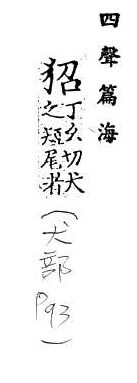 四聲篇海
㹦丁幺切犬
之短尾者
(犬部
P93)